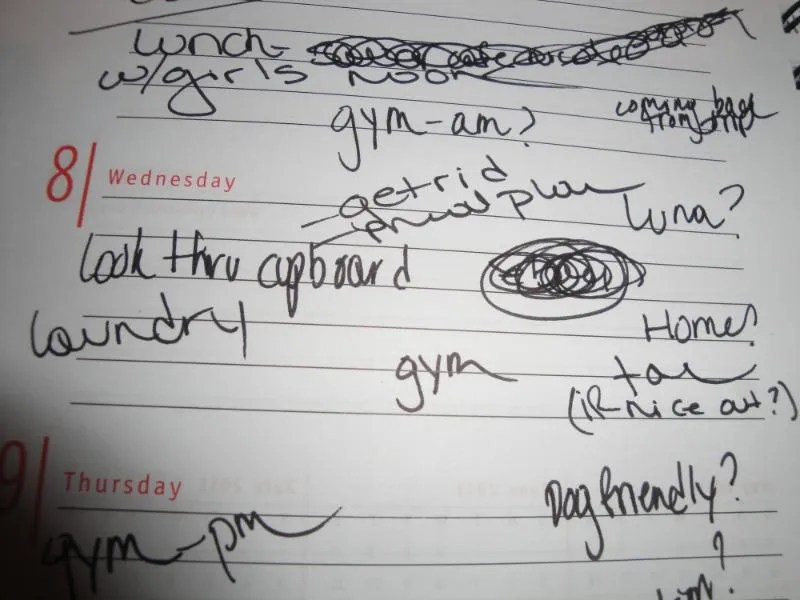 Lunch-
w/girls noon
gym-am?
coming back
from
8/ Wednesday
- get rid
- meal plan
Luna?
look thru cupboard
laundry
Home?
gym
tan
(if nice out?)
9/ Thursday
Dog friendly?
gym-pm
?